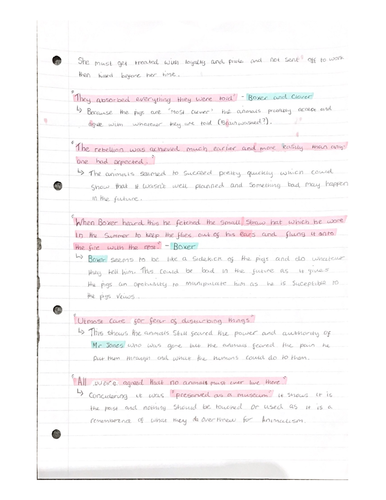 She must get treated with loyalty and pride and not sent off to work
then hard before her rise.
"They absorbed everything they were told" - Boxer and Clover
↳ Because the pigs are "most clever" the animals probably accept and
agree with whatever they are told
"The rebellion was achieved much earlier and more easily than any
one had expected."
↳ The animals seemed to succeed pretty quickly which could
show that it wasn't well planned and something bad may happen
in the future.
"When Boxer heard this he fetched the small straw hat which he wore
in the summer to keep the flies out of his ears and flung it onto
the fire with the rest" - Boxer
↳ Boxer seems to be like a sidekick of the pigs and do whatever
they tell him. This could be bad in the future as it gives
the pigs an oppotunity to manipulate him as he is suceptible to
the pigs views.
"Utmost care for fear of disturbing things"
↳ This shows the animals still feared the power and authority of
Mr Jones who was gone but the animals feared the pain he
put them through and what the humans could do to them.
"All were agreed that no animal must ever live there"
↳ Considering it was "preserved as a museum" it shows it is
the past and nothing should be touched or used as it is a
remembrance of what they overthrew for Animalism.